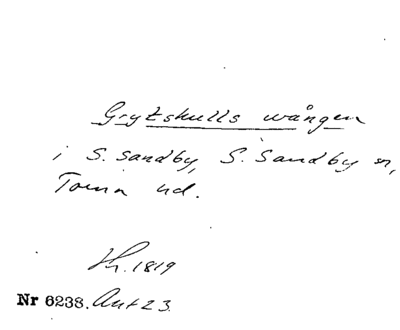 Grytskulls wången
i S. Sandby, S. Sandby sn,
Torna hd.
Lh. 1819
Nr 6238. Ant 23.